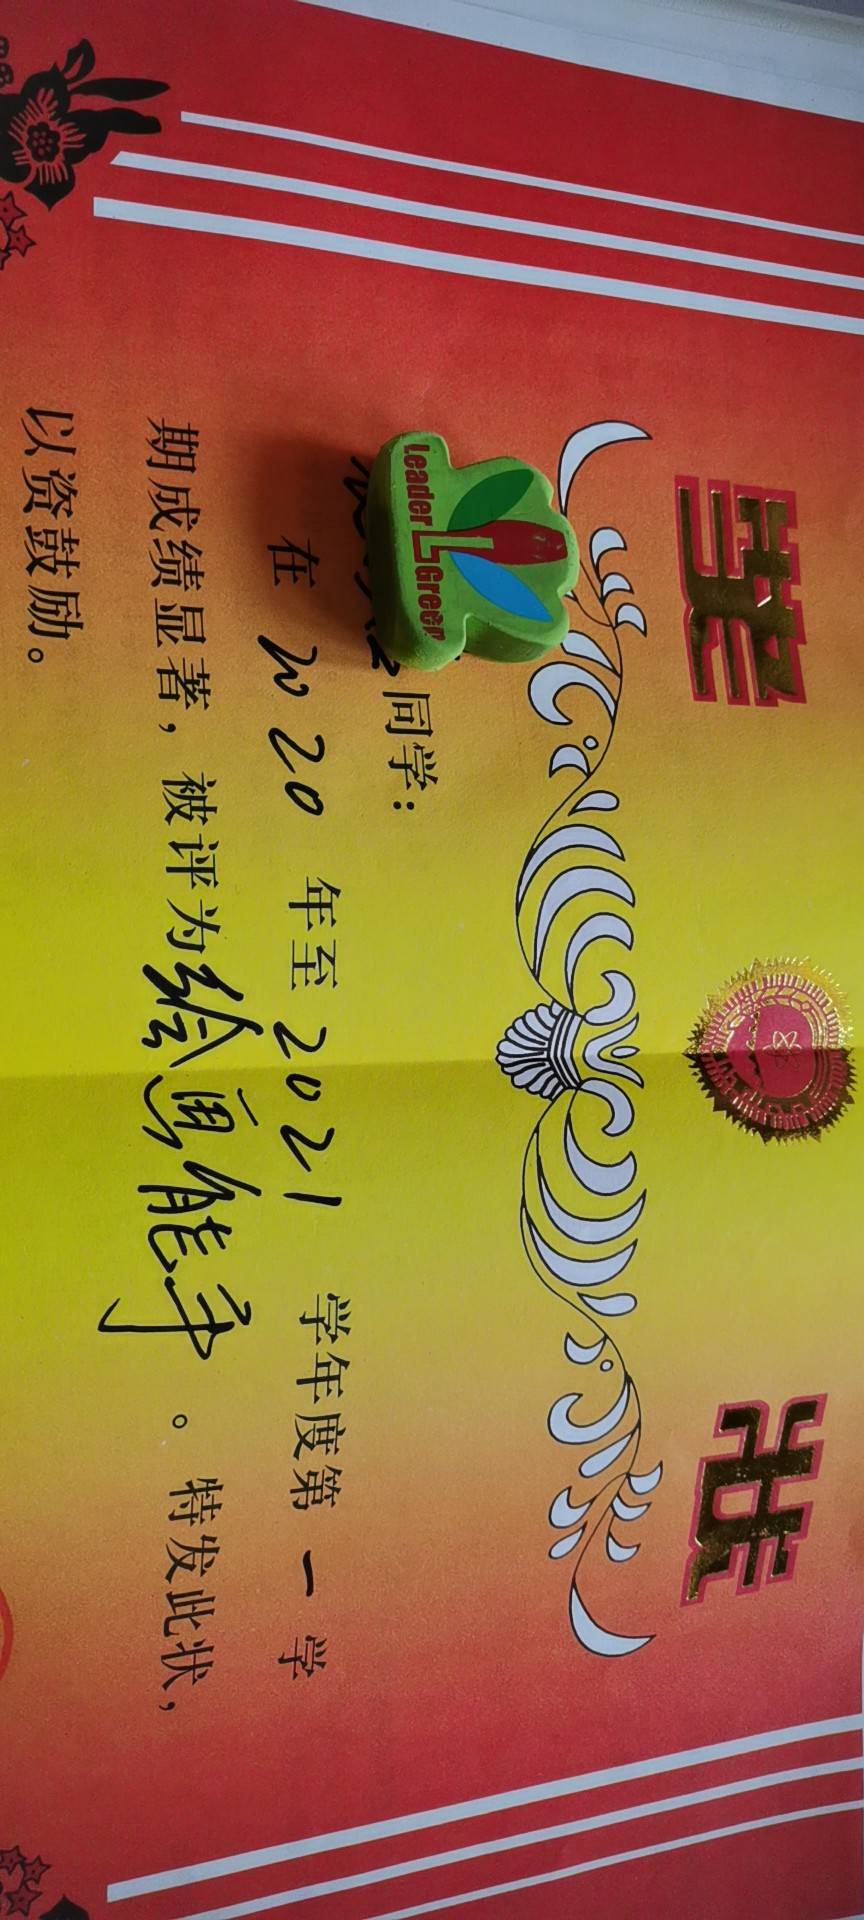 奖状
Leader Green
同学:
在 2020 年至 2021 学年度第 一 学
期成绩显著，被评为绘画能手。特发此状，
以资鼓励。